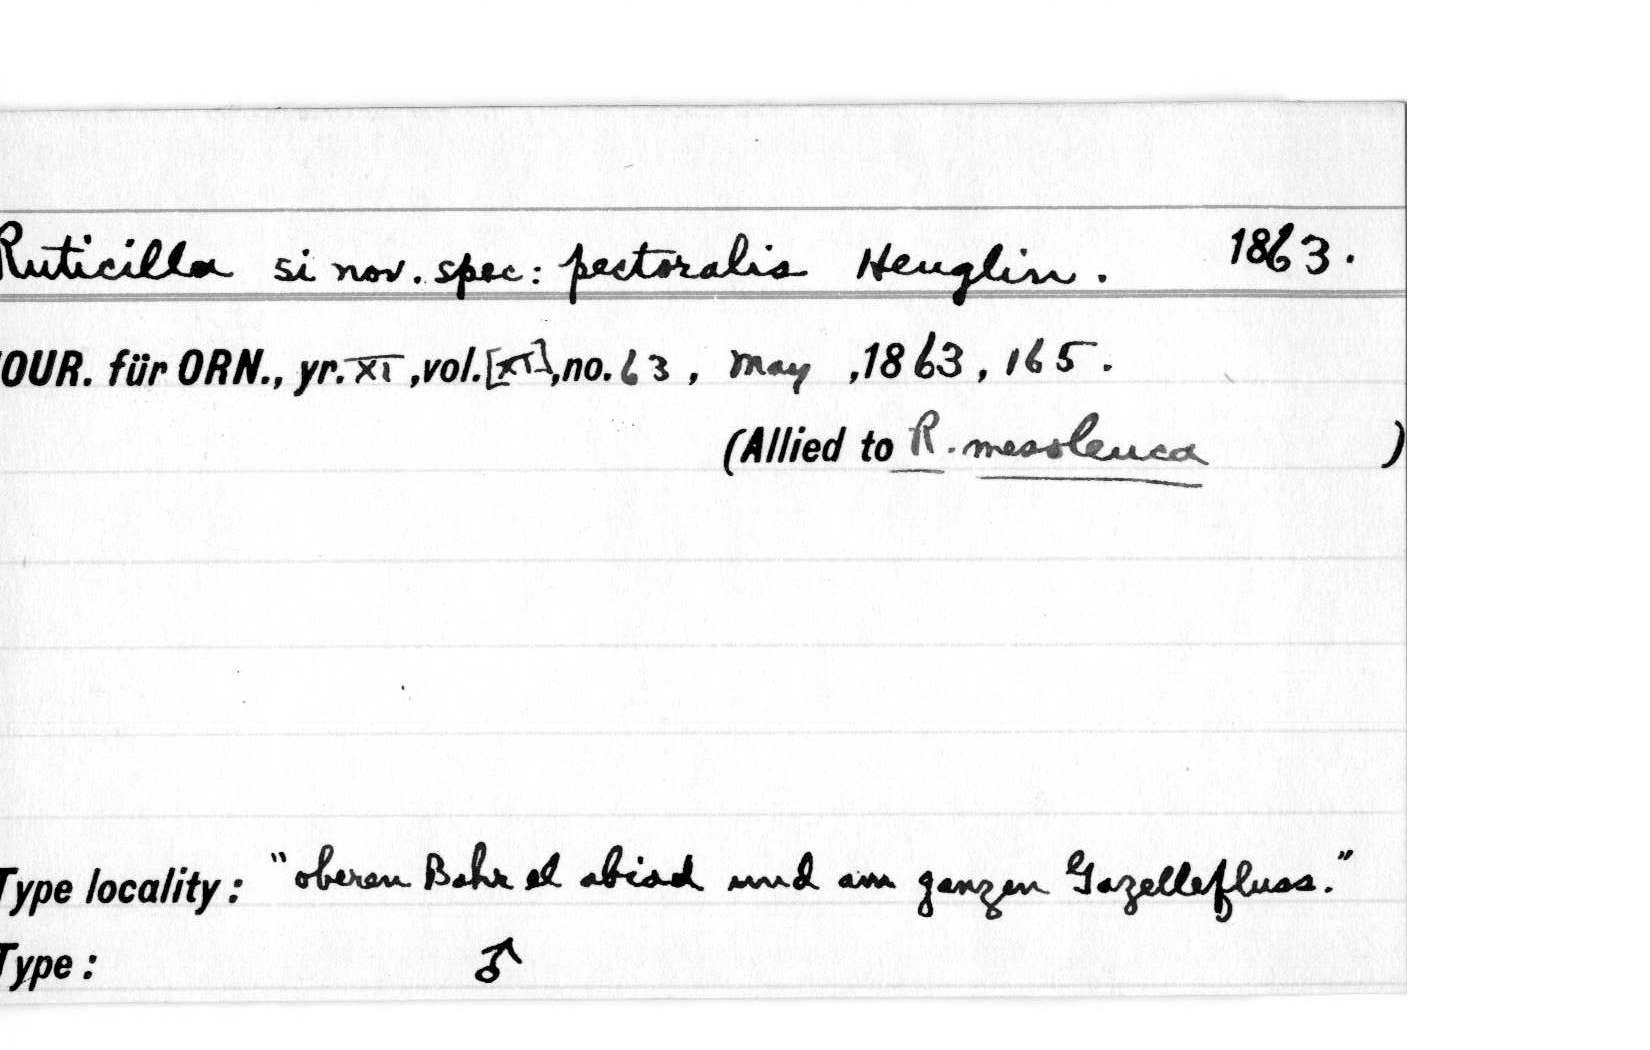 Ruticilla si nov. spec: pectoralis Heuglin. 1863.
OUR. für ORN., yr. XI, vol. [XI], no. 63, May, 1863, 165.
(Allied to R. mesoleuca )
Type locality: "oberen Bahr el abiad und am ganzen Gazellefluss."
Type: ♂